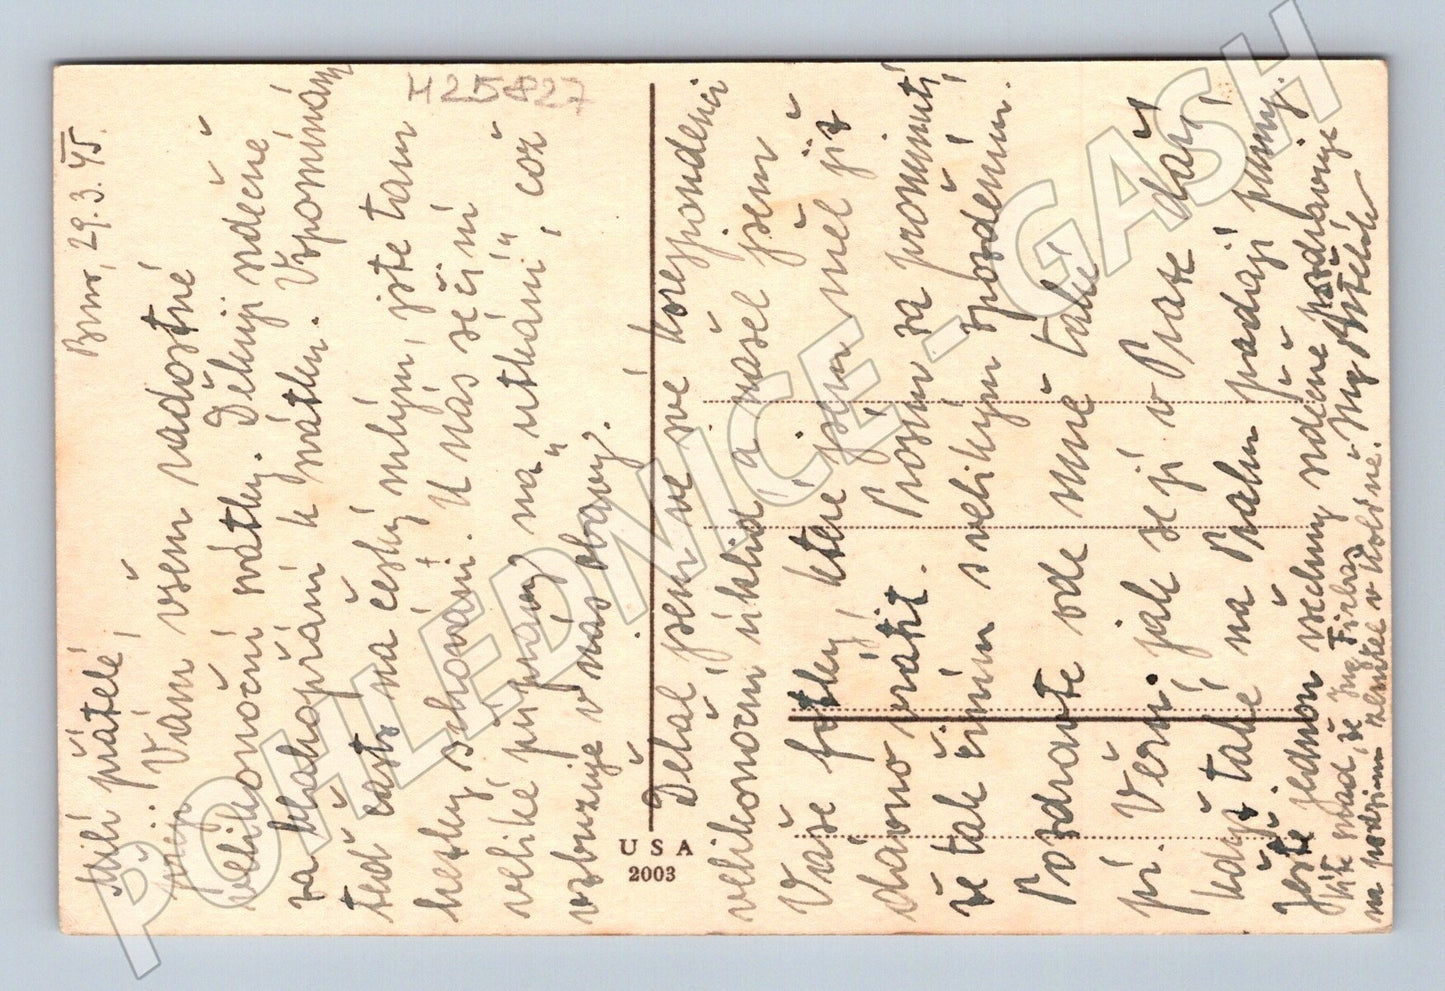 Brno, 29.3.45.
Milí přátelé,
Vám všem radostné
velikonoční svátky. Děkuji srdečně
za blahopřání k svátku. Vzpomínám
teď často na český mlýn, jste tam
hezky schováni! U nás se činí
veliké přípravy na „utkání“, což
vzbuzuje v nás obavy.
Dělal jsem ve své korespondenci
velikonoční úklid a našel jsem
Vaše fotky, které jsem měl již
dávno vrátit. Prosím za prominutí,
že tak činím s velikým zpožděním.
Pozdravte ode mne také
pí. Věru. jak se jí v Praze daří,
když také na Prahu padají pumy.
Ještě jednou všechny srdečně pozdravuje
že Ing.
na podzim
H25827
USA
2003
POHLEDNICE - GASH